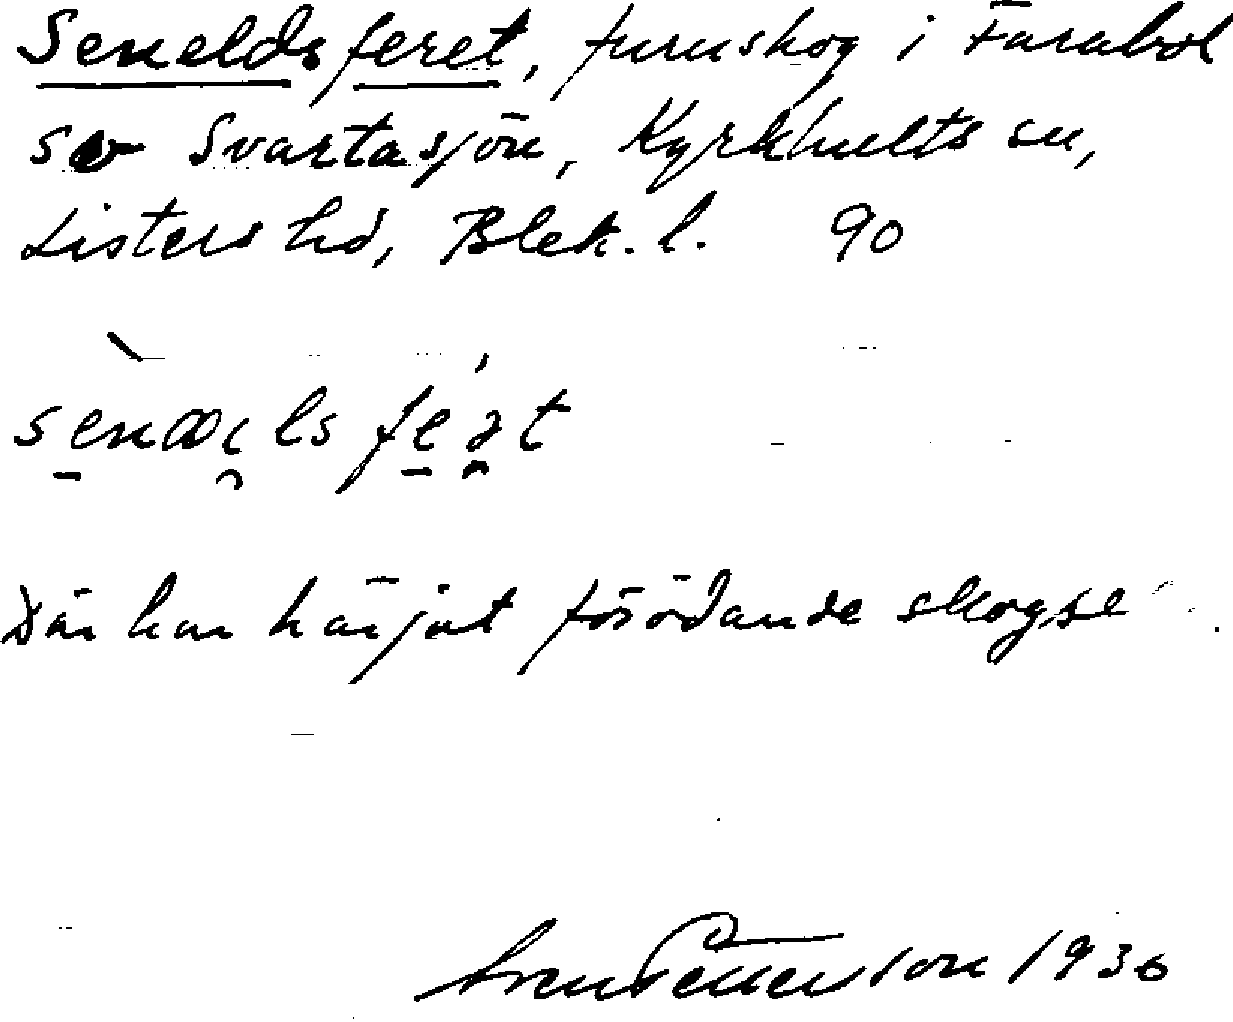 Seneldsferet, furuskog i Farabol
sv Svartasjön, Kyrkhults sn,
Listers hd, Blek. l. 90
senæi̯ls feə̯t
Där har härjat förödande skogse
Sven Petterson 1936